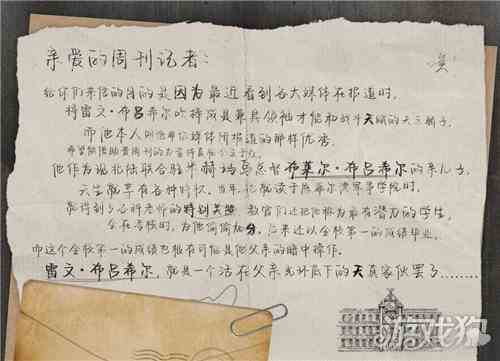 亲爱的周刊记者：
给你们来信的目的是因为最近看到各大媒体在报道时，
将雷文·布吕希尔吹捧成具兼具领袖才能和战斗天赋的天之骄子，
而他本人则
他作为现北陆联合 赫 总督布莱尔·布吕希尔的亲儿子，
天生就享有各种特权，当年 就读于 军事学院时，
就得到了各科老师的特别关照，教官们还把他称为最有潜力的学生，
会在考核时，为他偷偷加分，后来还以全校第一的成绩毕业，
而这个全校第一的成绩也极有可能是他父亲的暗中操作。
雷文·布吕希尔，就是一个活在父亲光环底下的天真家伙罢了………
游戏狗